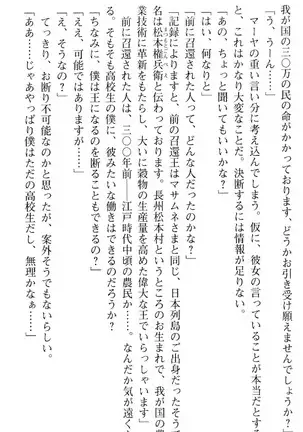 我が国の三〇万の民の命がかかっております、どうかお引き受け願えませんでしょうか？」
「う、うーん……」
マーヤの重い言い分に考え込んでしまう。仮に、彼女の言っていることが本当だとする
と、これはかなり大変なことだ。決断するには情報が足りない。
「あの、ちょっと聞いてもいいかな？」
「はい、何なりと」
「前に召還された人って、どんな人だったのかな？」
「記録によりますと、前の召還王はマサムネさまと同じ、日本列島のご出身だったそう
名は松本権兵衛と伝わっております。長州松本村というところのお生まれで、我が国の農
業技術に革新をもたらし、大いに穀物の生産量を高めた偉大な王でいらっしゃいます」
前に召還された人は、三〇〇年前――江戸時代中頃の農民か……。なんだか気が遠く
る。そもそも高校生の僕に、彼みたいな働きはできるのだろうか？
「ちなみに、僕は王になるのを断ることもできるの？」
「ええ、可能ではありますが……」
「え、そうなの？」
てっきり、お断り不可能なのかと思ったが、案外そうでもないらしい。
「あ……じゃあやっぱり僕はただの高校生だし、無理かなぁ……」